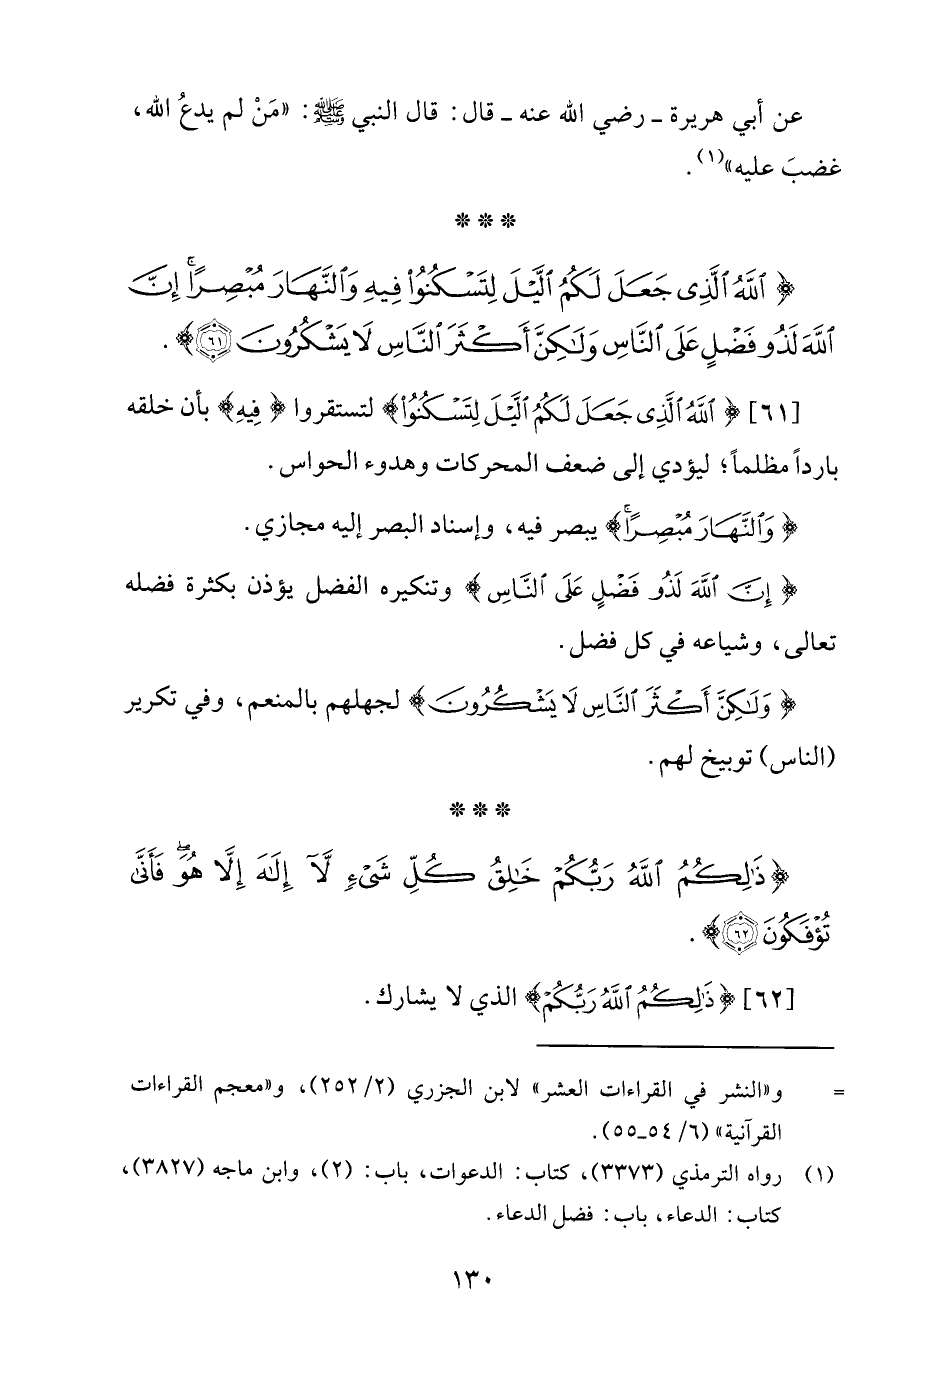 عن أبي هريرة ـ رضي الله عنه ـ قال: قال النبي ﷺ: «مَنْ لم يدعُ الله،
غضبَ عليه»(١).
* * *
﴿ٱللَّهُ ٱلَّذِى جَعَلَ لَكُمُ ٱلَّيْلَ لِتَسْكُنُوا۟ فِيهِ وَٱلنَّهَارَ مُبْصِرًا ۚ إِنَّ
ٱللَّهَ لَذُو فَضْلٍ عَلَى ٱلنَّاسِ وَلَٰكِنَّ أَكْثَرَ ٱلنَّاسِ لَا يَشْكُرُونَ ﴿٦١﴾﴾.
[٦١] ﴿ٱللَّهُ ٱلَّذِى جَعَلَ لَكُمُ ٱلَّيْلَ لِتَسْكُنُوا۟﴾ لتستقروا ﴿فِيهِ﴾ بأن خلقه
بارداً مظلماً؛ ليؤدي إلى ضعف المحركات وهدوء الحواس.
﴿وَٱلنَّهَارَ مُبْصِرًا ۚ﴾ يبصر فيه، وإسناد البصر إليه مجازي.
﴿إِنَّ ٱللَّهَ لَذُو فَضْلٍ عَلَى ٱلنَّاسِ﴾ وتنكيره الفضل يؤذن بكثرة فضله
تعالى، وشياعه في كل فضل.
﴿وَلَٰكِنَّ أَكْثَرَ ٱلنَّاسِ لَا يَشْكُرُونَ﴾ لجهلهم بالمنعم، وفي تكرير
(الناس) توبيخ لهم.
* * *
﴿ذَٰلِكُمُ ٱللَّهُ رَبُّكُمْ خَٰلِقُ كُلِّ شَىْءٍ لَّآ إِلَٰهَ إِلَّا هُوَ ۖ فَأَنَّىٰ
تُؤْفَكُونَ ﴿٦٢﴾﴾.
[٦٢] ﴿ذَٰلِكُمُ ٱللَّهُ رَبُّكُمْ﴾ الذي لا يشارك.
= و«النشر في القراءات العشر» لابن الجزري (٢/ ٢٥٢)، و«معجم القراءات
القرآنية» (٦/ ٥٤ـ٥٥).
(١) رواه الترمذي (٣٣٧٣)، كتاب: الدعوات، باب: (٢)، وابن ماجه (٣٨٢٧)،
كتاب: الدعاء، باب: فضل الدعاء.
١٣٠